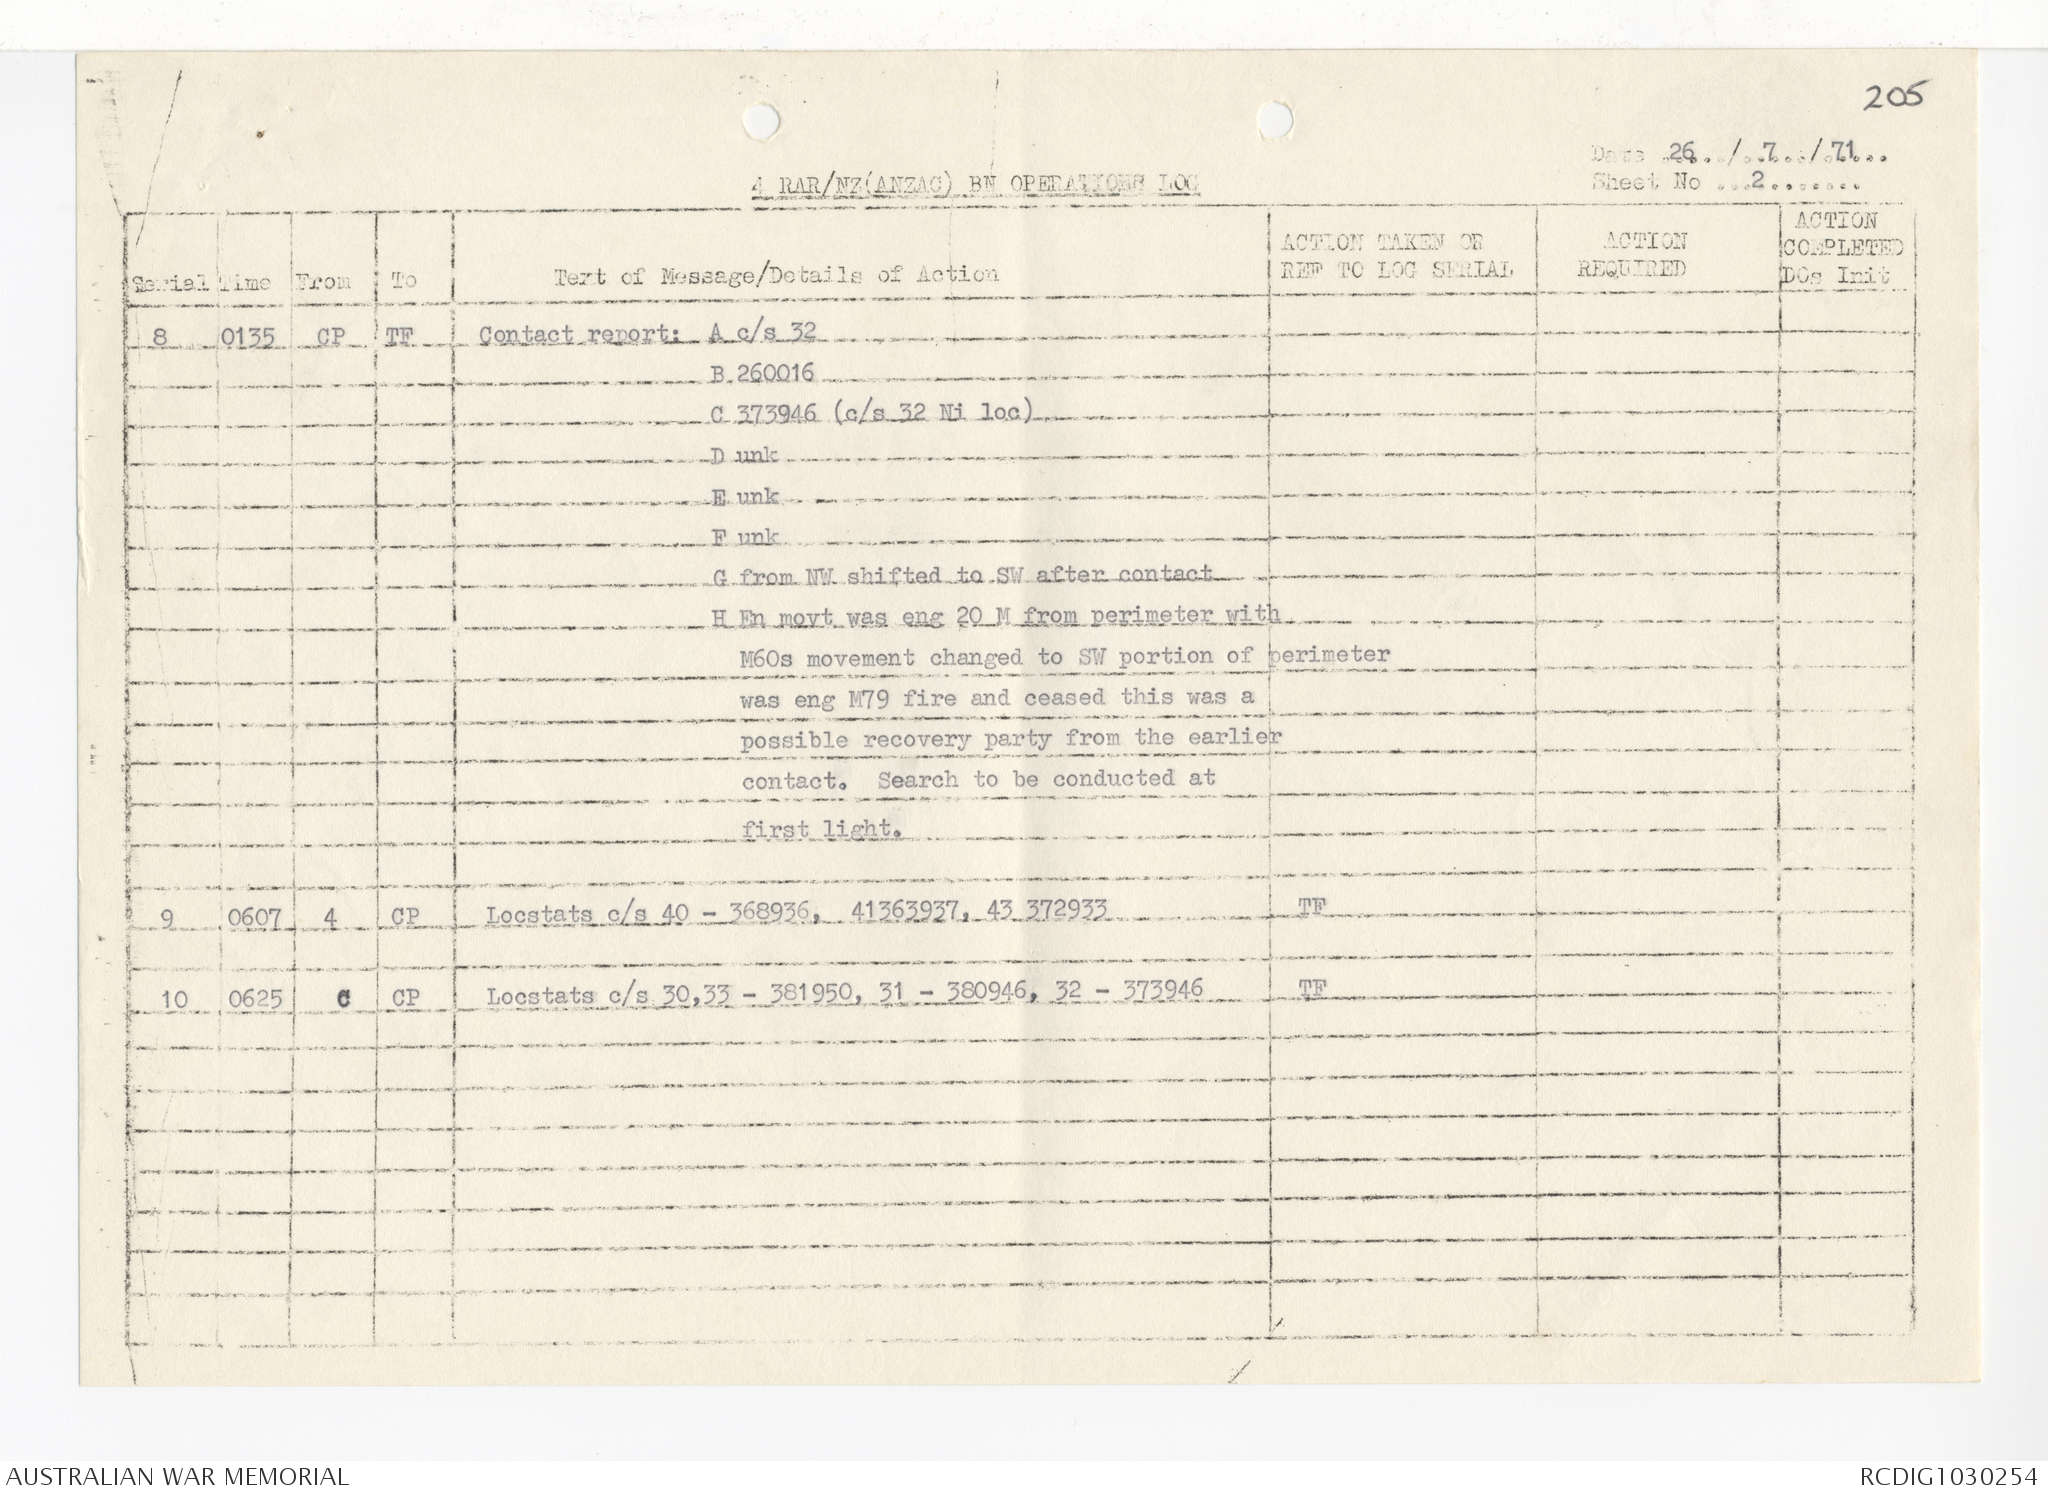 205
Date 26 / 7 / 71
4 RAR/NZ(ANZAC) BN OPERATIONS LOG
Sheet No 2
Serial Time From To Text of Message/Details of Action ACTION TAKEN OR REF TO LOG SERIAL ACTION REQUIRED ACTION COMPLETED DOs Init
8 0135 CP TF Contact report: A c/s 32
B 260016
C 373946 (c/s 32 Ni loc)
D unk
E unk
F unk
G from NW shifted to SW after contact
H En movt was eng 20 M from perimeter with
M60s movement changed to SW portion of perimeter
was eng M79 fire and ceased this was a
possible recovery party from the earlier
contact. Search to be conducted at
first light.
9 0607 4 CP Locstats c/s 40 - 368936, 41363937, 43 372933 TF
10 0625 C CP Locstats c/s 30,33 - 381950, 31 - 380946, 32 - 373946 TF
AUSTRALIAN WAR MEMORIAL
RCDIG1030254